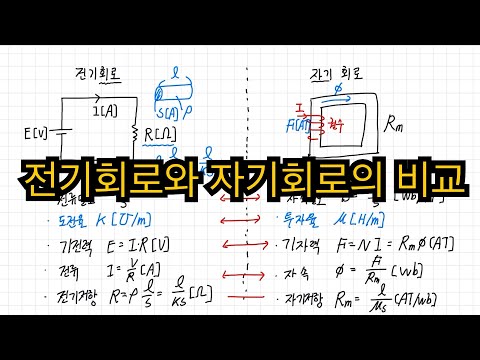 전기회로
자기 회로
l
S[A] ρ
I[A]
E[V]
R[Ω]
ϕ
I
F[AT]
횟수
Rm
전기회로와 자기회로의 비교
· 도전율 K [℧/m] ↔ · 투자율 μ [H/m]
· 기전력 E = I·R [V] ↔ · 기자력 F = N I = Rmϕ [AT]
· 전류 I = V/R [A] ↔ · 자속 ϕ = F/Rm [wb]
· 전기저항 R = ρ l/S = l/KS [Ω] ↔ · 자기저항 Rm = l/μS [AT/wb]